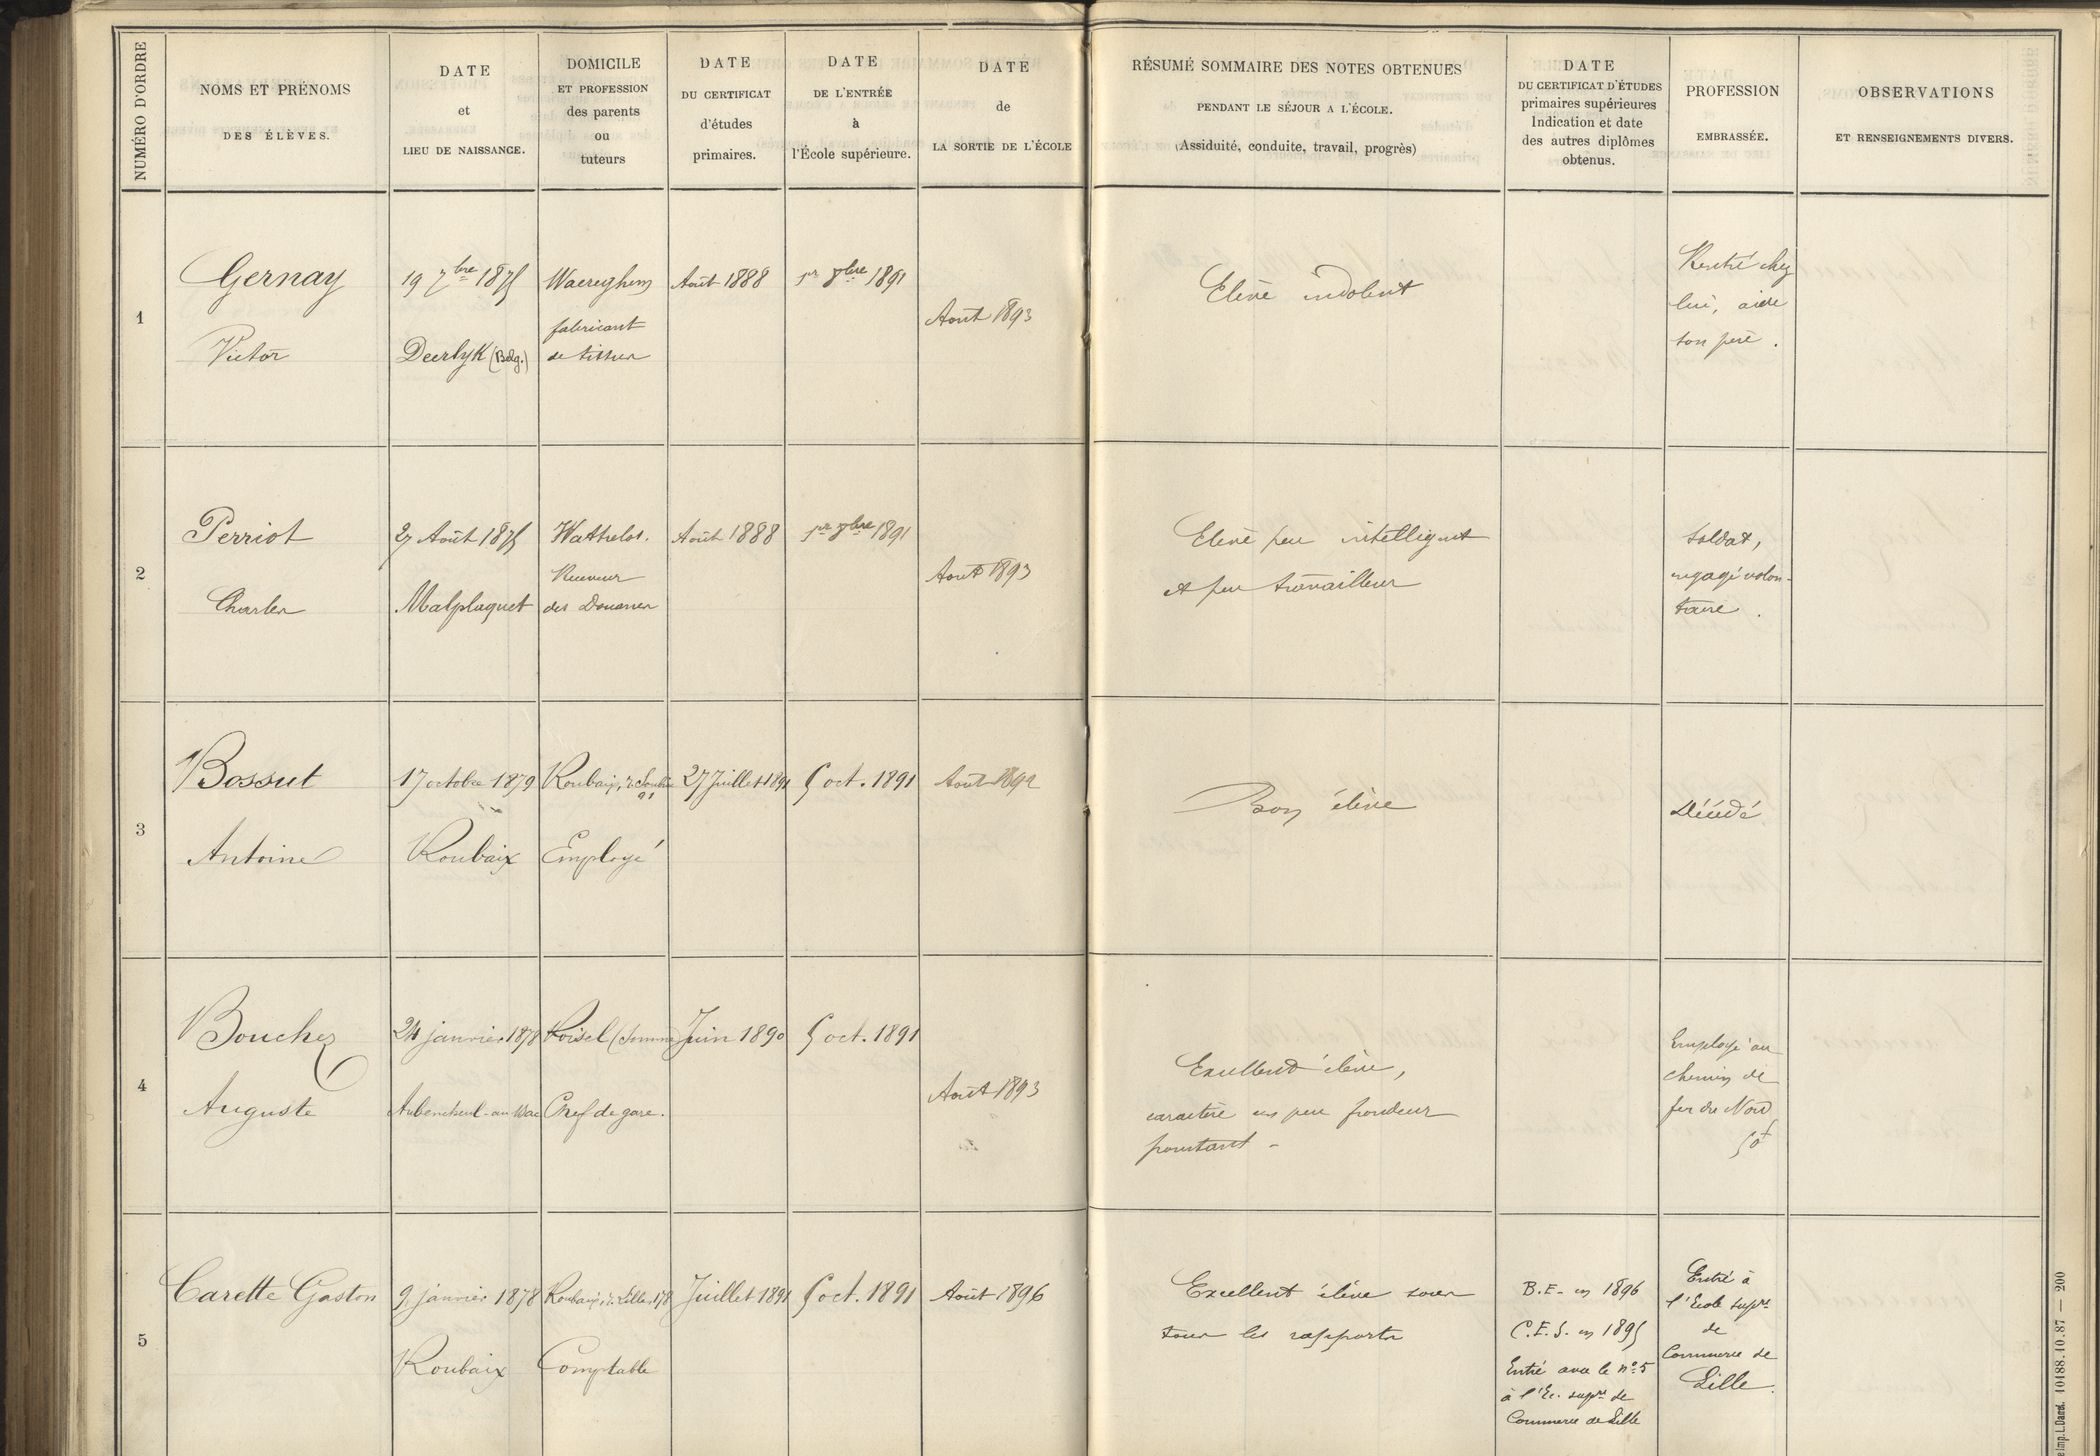 NUMÉRO D'ORDRE
NOMS ET PRÉNOMS
DES ÉLÈVES.
DATE
et
LIEU DE NAISSANCE.
DOMICILE
ET PROFESSION
des parents
ou
tuteurs
DATE
DU CERTIFICAT
d'études
primaires.
DATE
DE L'ENTRÉE
à
l'École supérieure.
DATE
de
LA SORTIE DE L'ÉCOLE
RÉSUMÉ SOMMAIRE DES NOTES OBTENUES
PENDANT LE SÉJOUR A L'ÉCOLE.
(Assiduité, conduite, travail, progrès)
DATE
DU CERTIFICAT D'ÉTUDES
primaires supérieures
Indication et date
des autres diplômes
obtenus.
PROFESSION
EMBRASSÉE.
OBSERVATIONS
ET RENSEIGNEMENTS DIVERS.
1
Gernay
Victor
19 7bre 1875
Deerlyk (Belg.)
Waereghem
fabricant
de tissus
Août 1888
1er 8bre 1891
Août 1893
Elève indolent
Rentré chez
lui, aide
son père.
2
Perriot
Charles
27 Août 1875
Malplaquet
Wattrelos.
Receveur
des Douanes
Août 1888
1er 8bre 1891
Août 1893
Elève peu intelligent
et peu travailleur
Soldat,
engagé volon-
taire.
3
Bossut
Antoine
17 octobre 1879
Roubaix
Roubaix, r.
91
Employé
27 Juillet 1891
5 oct. 1891
Août 1892
Bon élève
Décédé
4
Bouchez
Auguste
24 janvier 1878
Aubencheul-au-Bac
Roisel (Somme)
Chef de gare.
Juin 1890
5 oct. 1891
Août 1893
Excellent élève,
caractère un peu frondeur
pourtant -
Employé au
chemin de
fer du Nord
5
Carette Gaston
9 janvier 1878
Roubaix
Roubaix, r. Lille, 178
Comptable
Juillet 1891
5 oct. 1891
Août 1896
Excellent élève sous
tous les rapports
B.E. en 1896
C.E.S. en 1895
Entré avec le n° 5
à l'Ec. supre de
Commerce de Lille
Entré à
l'Ecole supre
de
Commerce de
Lille.
Imp. L. Danel. 10188.10.87 — 200